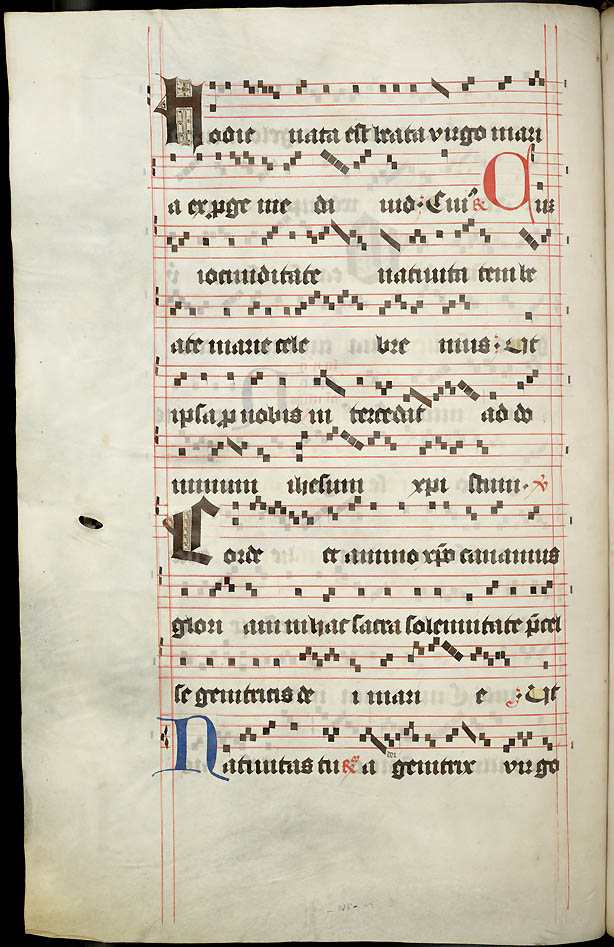 Hodie nata est beata virgo mari
a ex pge nie da uid· Cui' ℟ Cũ
iocunditate natiuita tem be
ate marie cele bre mus· Ut
ipsa p nobis in tercedat ad do
minum ihesum xpi stum· ℣
Corde et animo xp̄o canamus
glori am in hac sacra solemnitate p̄cel
se genitricis de i mari e · Ut
Natiuitas tu ℟ a dei genitrix virgo